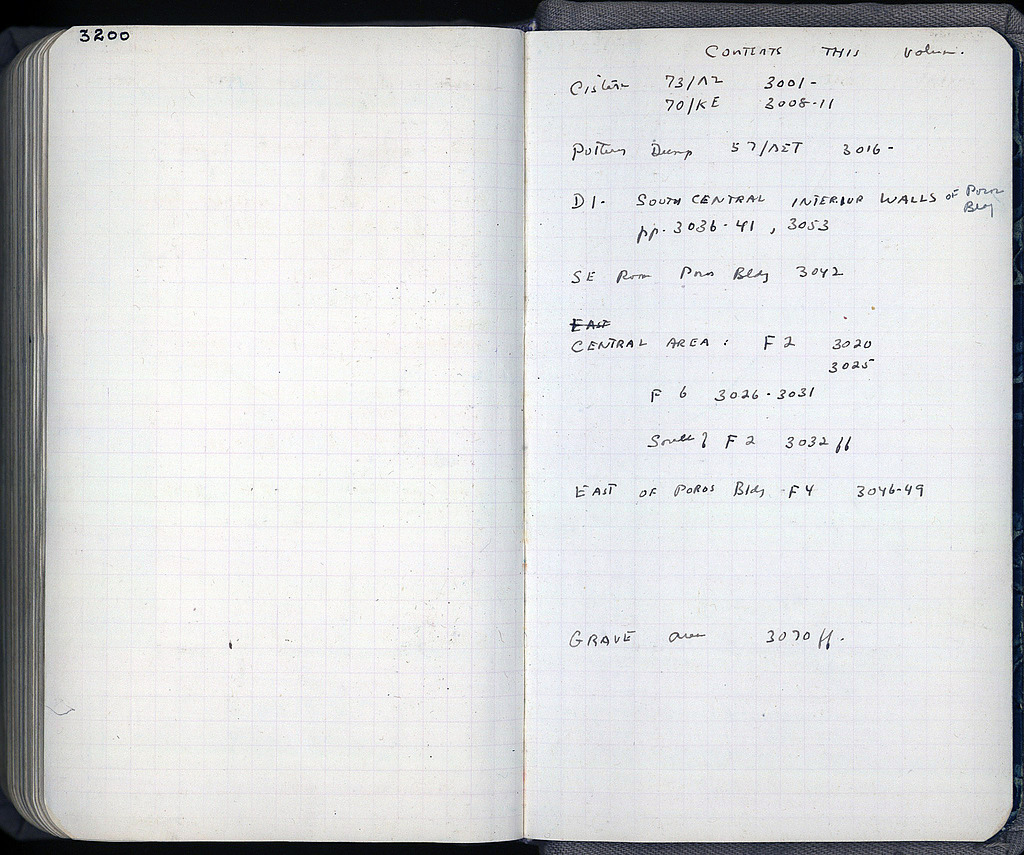 3200
CONTENTS THIS Volum.
Cistern 73/ΛΖ 3001-
70/KE 3008-11
Pottery Dump 57/ΛΣΤ 3016-
D1- SOUTH CENTRAL INTERIOR WALLS OF Poros Bldg
pp. 3036-41, 3053
SE Room Poros Bldg 3042
EAST
CENTRAL AREA: F2 3020
3025
F 6 3026-3031
South of F2 3032 ff
EAST OF POROS Bldg F4 3046-49
GRAVE area 3070 ff.